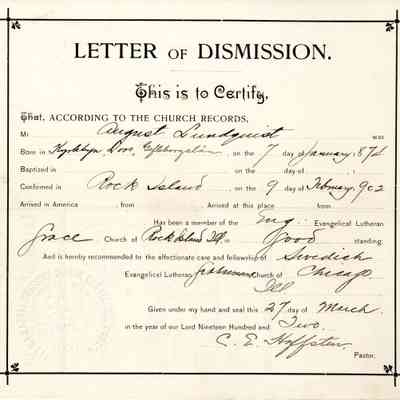 LETTER OF DISMISSION.
This is to Certify,
That, ACCORDING TO THE CHURCH RECORDS,
Mr August Lundquist was
Born in on the 7 day of January 1874
Baptized in on the day of :
Confirmed in Rock Island on the 9 day of February 1902
Arrived in America from Arrived at this place from
Has been a member of the Eng. Evangelical Lutheran
Grace Church of Rock Island Ill, in Good standing:
And is hereby recommended to the affectionate care and fellowship of Swedish
Evangelical Lutheran Church of Chicago
Ill
Given under my hand and seal this 27 day of March
in the year of our Lord Nineteen Hundred and Two.
C. E. Hoffsten
Pastor.